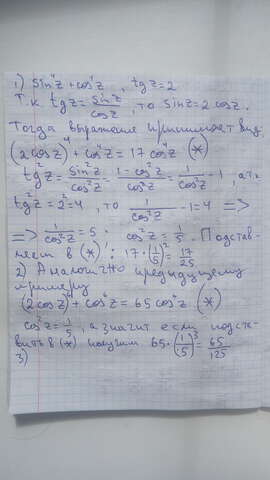 1) sin⁴z + cos⁴z , tg z = 2
Т.к. tg z = sin z / cos z , то sin z = 2 cos z.
Тогда выражение принимает вид
(2 cos z)⁴ + cos⁴z = 17 cos⁴z (*)
tg²z = sin²z / cos²z = 1 - cos²z / cos²z = 1 / cos²z - 1 , а т.к.
tg²z = 2² = 4 , то 1 / cos²z - 1 = 4 =>
=> 1 / cos²z = 5 . cos²z = 1/5 . Подстав-
ляем в (*) : 17 · (1/5)² = 17/25
2) Аналогично предыдущему
примеру
(2 cos z)⁶ + cos⁶z = 65 cos⁶z (*)
cos²z = 1/5 , а значит если подста-
вить в (*) получим 65 · (1/5)³ = 65/125
3)